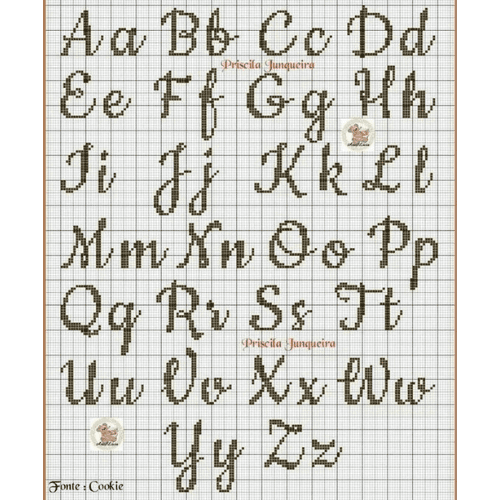 Aa Bb Cc Dd
Priscila Junqueira
Ee Ff Gg Hh
Ii Jj Kk Ll
Mm Nn Oo Pp
Qq Rr Ss Tt
Priscila Junqueira
Uu Vv Xx Ww
Yy Zz
Fonte : Cookie